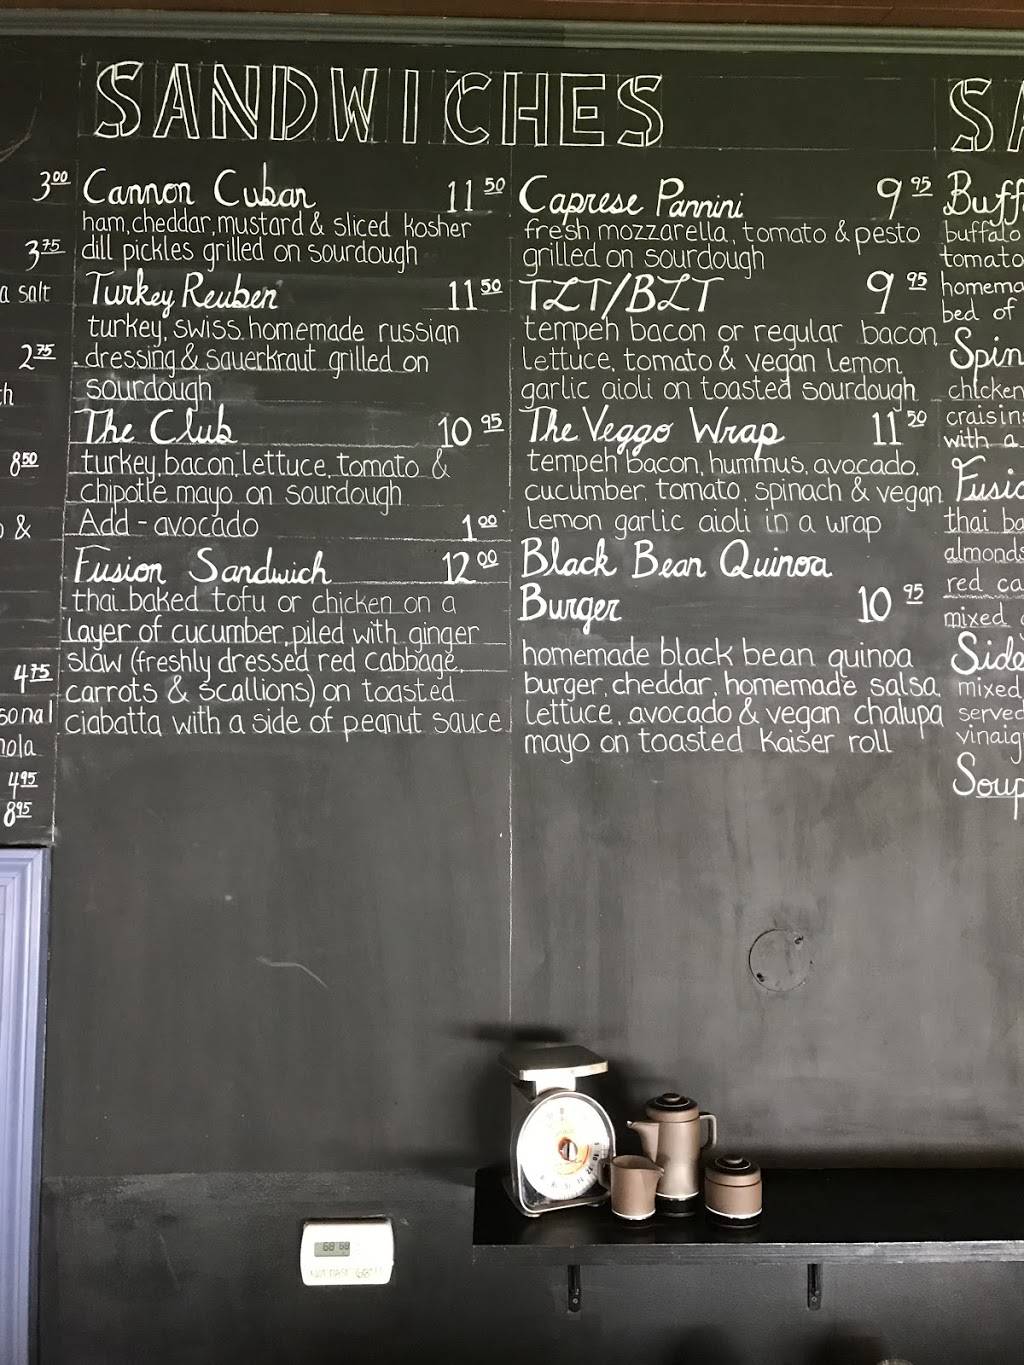 SANDWICHES
Cannon Cuban 11 50
ham, cheddar, mustard & sliced kosher
dill pickles grilled on sourdough
Turkey Reuben 11 50
turkey, swiss, homemade russian
dressing & sauerkraut grilled on
sourdough
The Club 10 95
turkey, bacon, lettuce, tomato &
chipotle mayo on sourdough
Add - avocado 1 00
Fusion Sandwich 12 00
thai baked tofu or chicken on a
layer of cucumber, piled with ginger
slaw (freshly dressed red cabbage,
carrots & scallions) on toasted
ciabatta with a side of peanut sauce
Caprese Pannini 9 95
fresh mozzarella, tomato & pesto
grilled on sourdough
TLT/BLT 9 95
tempeh bacon or regular bacon
lettuce, tomato & vegan lemon
garlic aioli on toasted sourdough
The Veggo Wrap 11 50
tempeh bacon, hummus, avocado,
cucumber, tomato, spinach & vegan
lemon garlic aioli in a wrap
Black Bean Quinoa
Burger 10 95
homemade black bean quinoa
burger, cheddar, homemade salsa,
lettuce, avocado & vegan chalupa
mayo on toasted kaiser roll
3 00
3 75
a salt
2 75
8 50
&
4 75
4 95
8 95
SA
Buff
buffalo
tomato
homema
bed of
Spin
chicken
craisins
with a
Fusio
thai ba
almonds
red ca
mixed
Side
mixed
served
vinaig
Soup
68 68